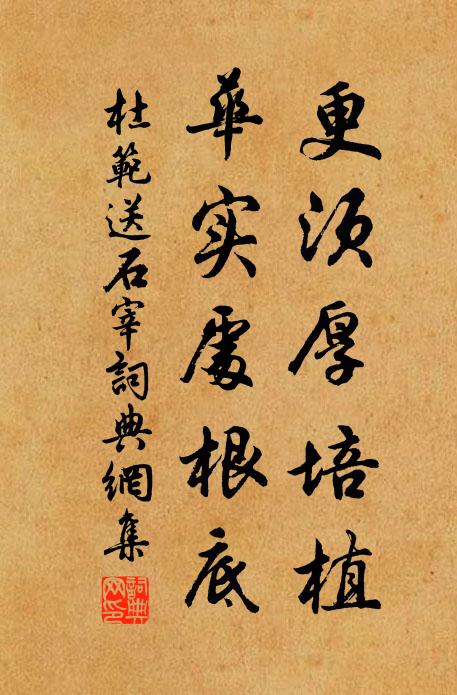 更须厚培植
華实處根底
杜範送石宰詞典網集
詞典网印